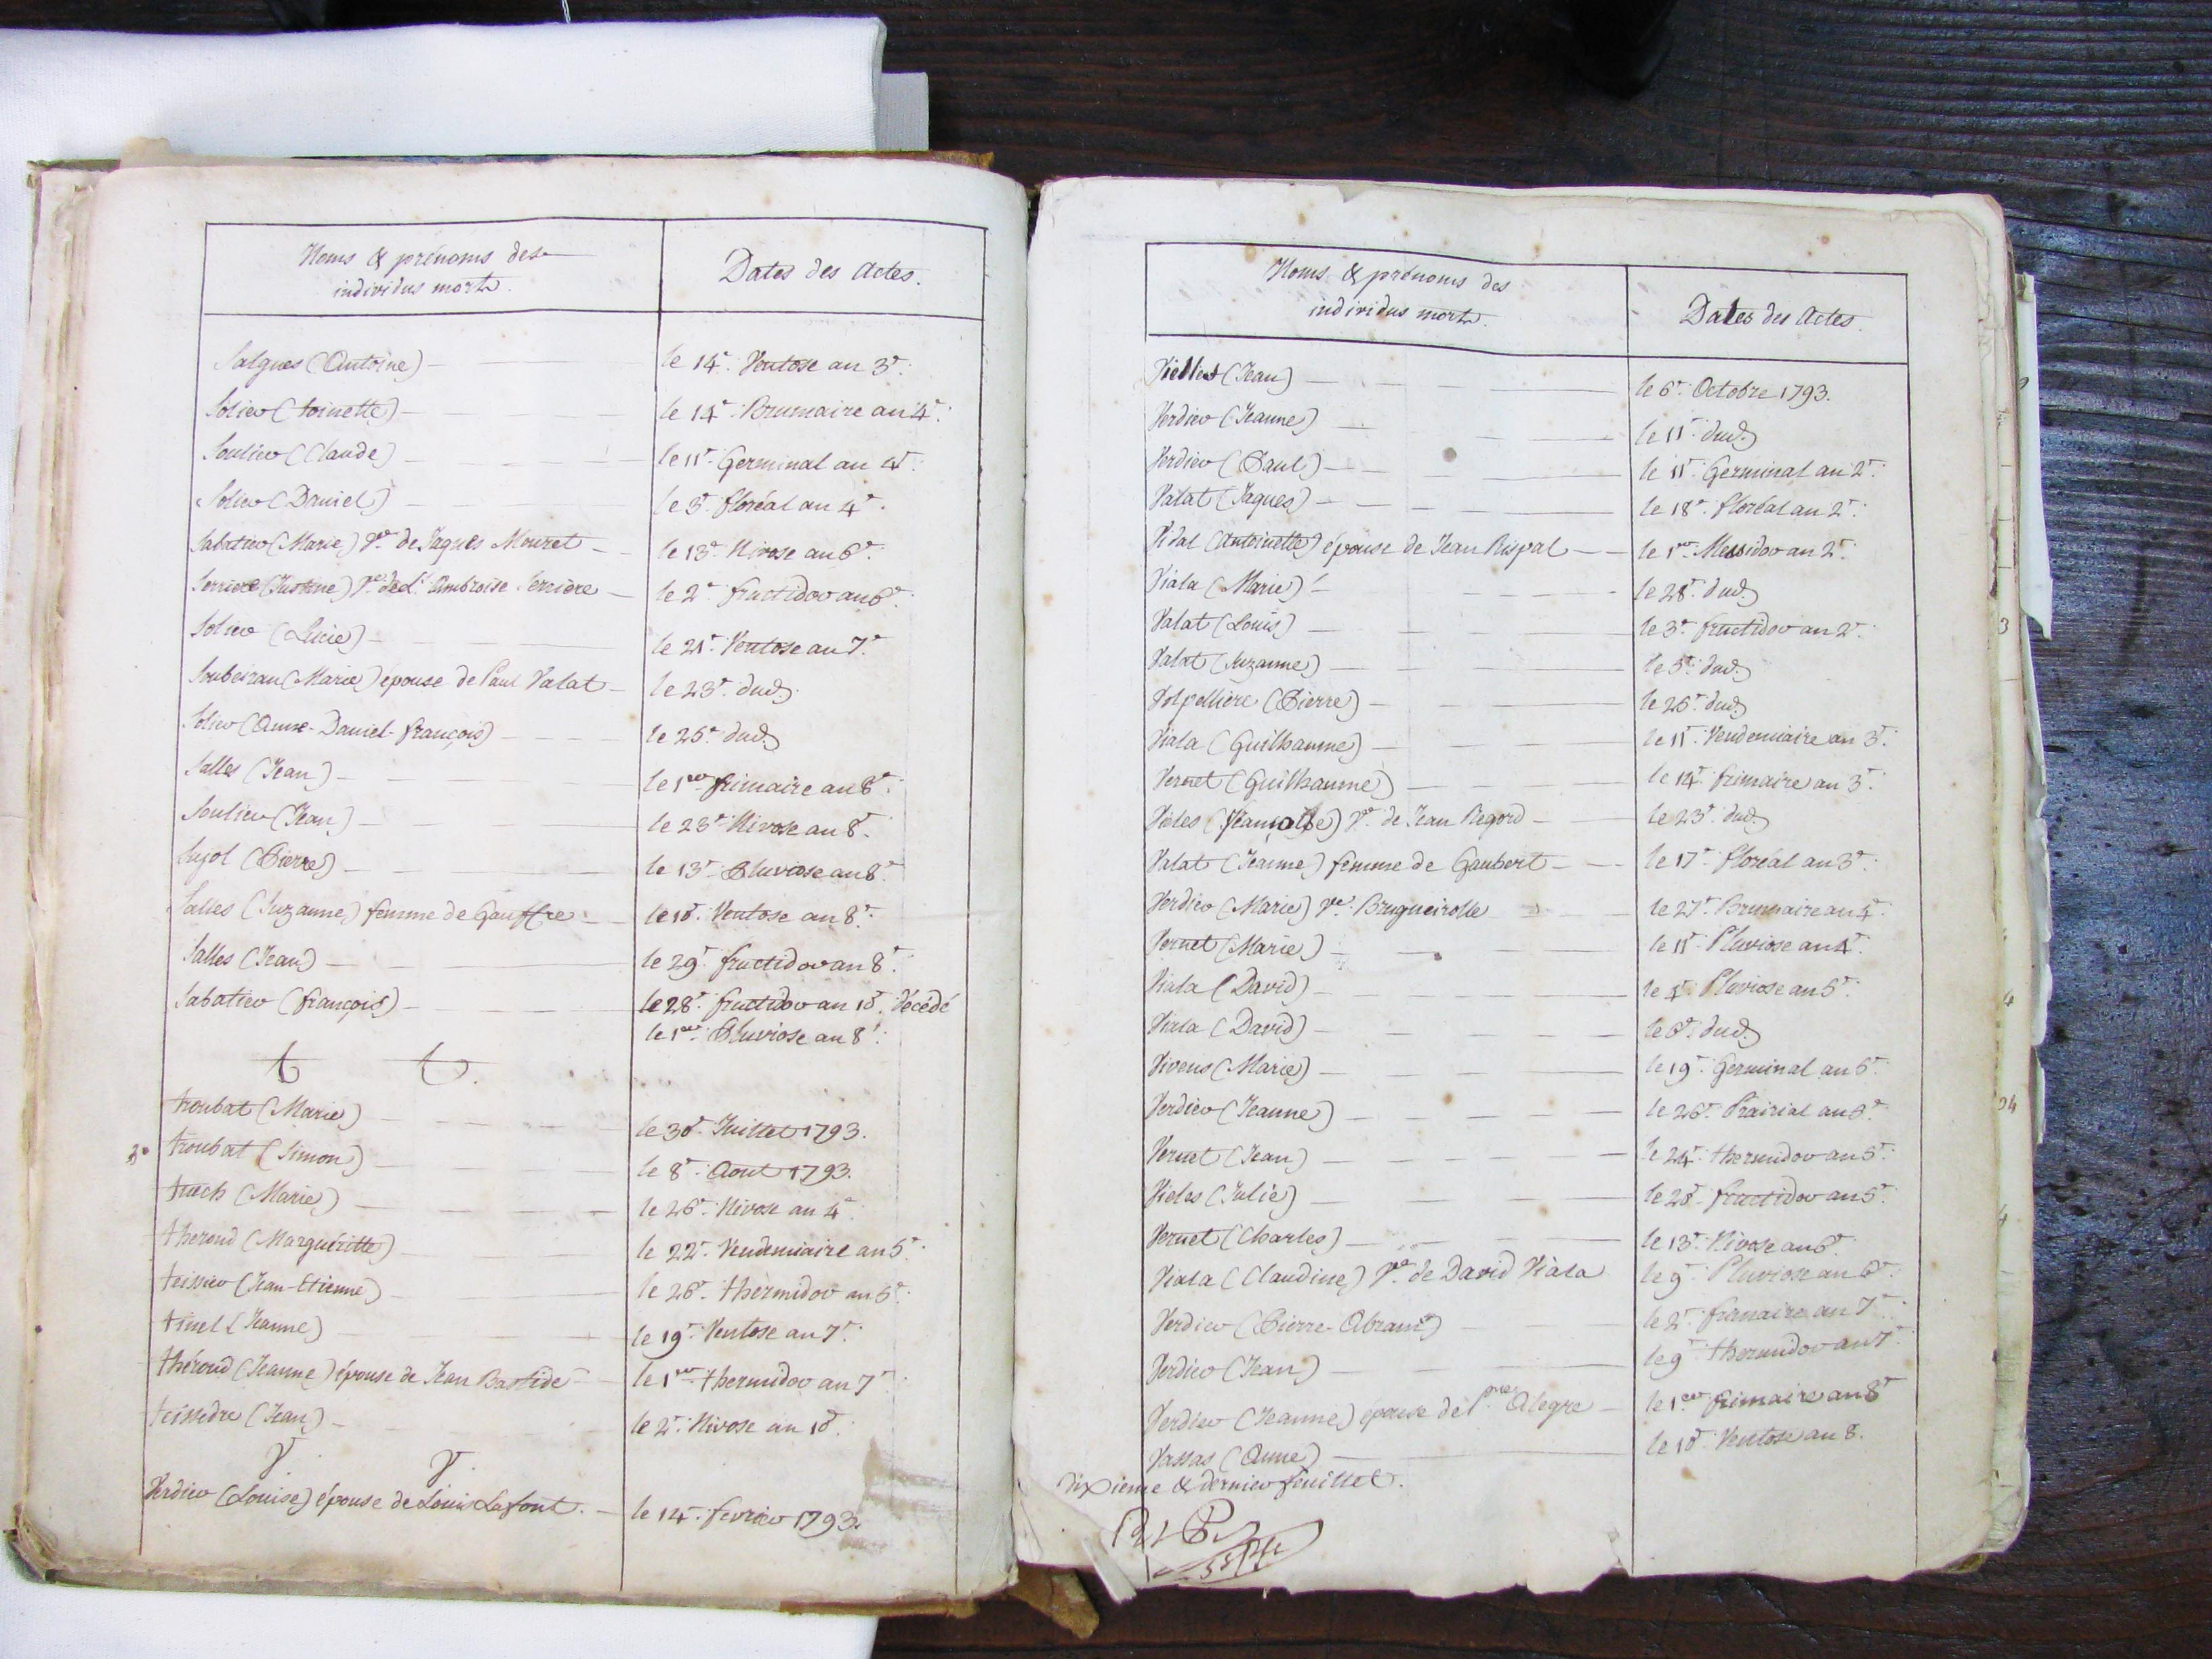 Noms & prénoms des
individus morts.
Dates des Actes.
Salgues (Antoine) le 14e. Ventose an 3e.
Solier (toinette) le 14e. Brumaire an 4e.
Soulier (Claude) le 11e. Germinal an 4e.
Solier (Daniel) le 3e. floréal an 4e.
Sabatier (Marie) Ve. de Jaques Mouret le 13e. Nivose an 6e.
Serriere (Justine) Ve. de d. Ambroise Serriere le 2e. fructidor an 6e.
Solier (Lucie) le 21e. Ventose an 7e.
Soubeiran (Marie) épouse de Paul Valat le 23e. dud.
Solier (Anne-Daniel-françois) le 25e. dud.
Salles (Jean) le 1er. frimaire an 8e.
Soulier (Jean) le 23e. Nivose an 8e.
Sujol (Pierre) le 13e. Pluviose an 8e.
Salles (Suzanne) femme de Gauffre le 10e. Ventose an 8e.
Salles (Jean) le 29e. fructidor an 8e.
Sabatier (françois) le 28e. fructidor an 10e. décédé
le 1er. Pluviose an 8e.
t t.
troubat (Marie) le 30e. Juillet 1793.
troubat (Simon) le 8e. Aout 1793.
truch (Marie) le 26e. Nivose an 4e.
therond (Marguéritte) le 22e. Vendemiaire an 5e.
teissier (Jean-Etienne) le 26e. thermidor an 5e.
tinel (Jeanne) le 19e. Ventose an 7e.
thérond (Jeanne) épouse de Jean Bastide le 1er. thermidor an 7e.
teissedre (Jean) le 2e. Nivose an 10e.
V. V.
Verdier (Louise) épouse de Louis Lafont. le 14e. fevrier 1793.
Noms & prénoms des
individus morts.
Dates des Actes.
Vielles (Jean) le 6e. Octobre 1793.
Verdier (Jeanne) le 11e. dud.
Verdier (Paul) le 11e. Germinal an 2e.
Valat (Jaques) le 18e. floréal an 2e.
Vidal (Antoinette) épouse de Jean Rispal le 1er. Messidor an 2e.
Viala (Marie) le 28e. dud.
Valat (Louis) le 3e. fructidor an 2e.
Valat (Suzanne) le 5e. dud.
Volpelliere (Pierre) le 25e. dud.
Viala (Guilhaume) le 11e. Vendemiaire an 3e.
Vernet (Guilhaume) le 14e. frimaire an 3e.
Vieles (françoise) Ve. de Jean Regord le 23e. dud.
Valat (Jeanne) femme de Gaubert le 17e. floréal an 3e.
Verdier (Marie) Ve. Brugueirolle le 27e. Brumaire an 4e.
Vernet (Marie) le 11e. Pluviose an 4e.
Viala (David) le 4e. Pluviose an 5e.
Viala (David) le 6e. dud.
Vivens (Marie) le 19e. Germinal an 5e.
Verdier (Jeanne) le 26e. Prairial an 5e.
Vernet (Jean) le 24e. thermidor an 5e.
Vieles (Julie) le 20e. fructidor an 5e.
Vernet (Charles) le 13e. Nivose an 6e.
Viala (Claudine) Ve. de David Viala le 9e. Pluviose an 6e.
Verdier (Pierre-Abram) le 2e. frimaire an 7e.
Verdier (Jean) le 9e. thermidor an 7e.
Verdier (Jeanne) épouse de Pre. Alegre le 1er. frimaire an 8e
Vassas (Anne) le 10e. Ventose an 8.
Dixieme & dernier feuillet.